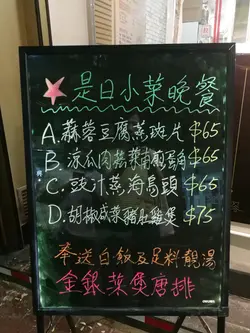 是日小菜晚餐
A. 蒜蓉豆腐蒸斑片 $65
B. 涼瓜肉蓉菜甫煎蛋角 $65
C. 豉汁蒸海烏頭 $65
D. 胡椒咸菜豬肚雞煲 $75
奉送白飯及足料靚湯
金銀菜煲唐排